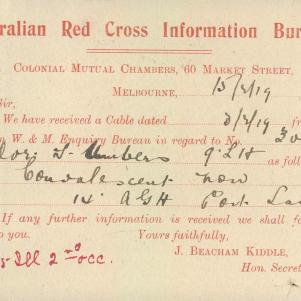 ralian Red Cross Information Bur
Colonial Mutual Chambers, 60 Market Street,
Melbourne, 15/3/19
Sir,
We have received a Cable dated 3/3/19 from
W. & M. Enquiry Bureau in regard to No. 30
9 LH as follo
Convalescent now
14 AGH Port
If any further information is received we shall fo
to you. Yours faithfully,
J. BEACHAM KIDDLE,
Hon. Secret
Ill 2nd occ.